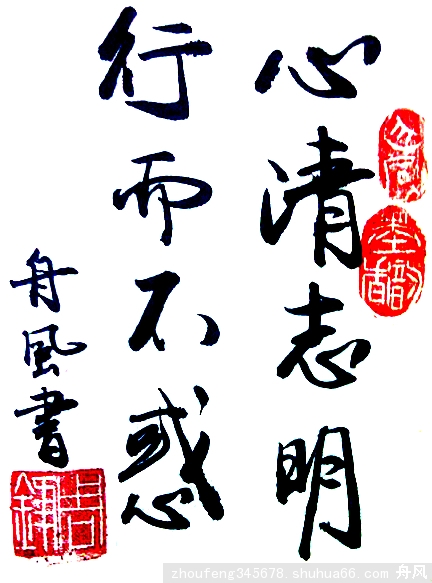 心清志明
行而不惑
舟風書
墨韵
zhoufeng345678 shuhua66.com 舟风